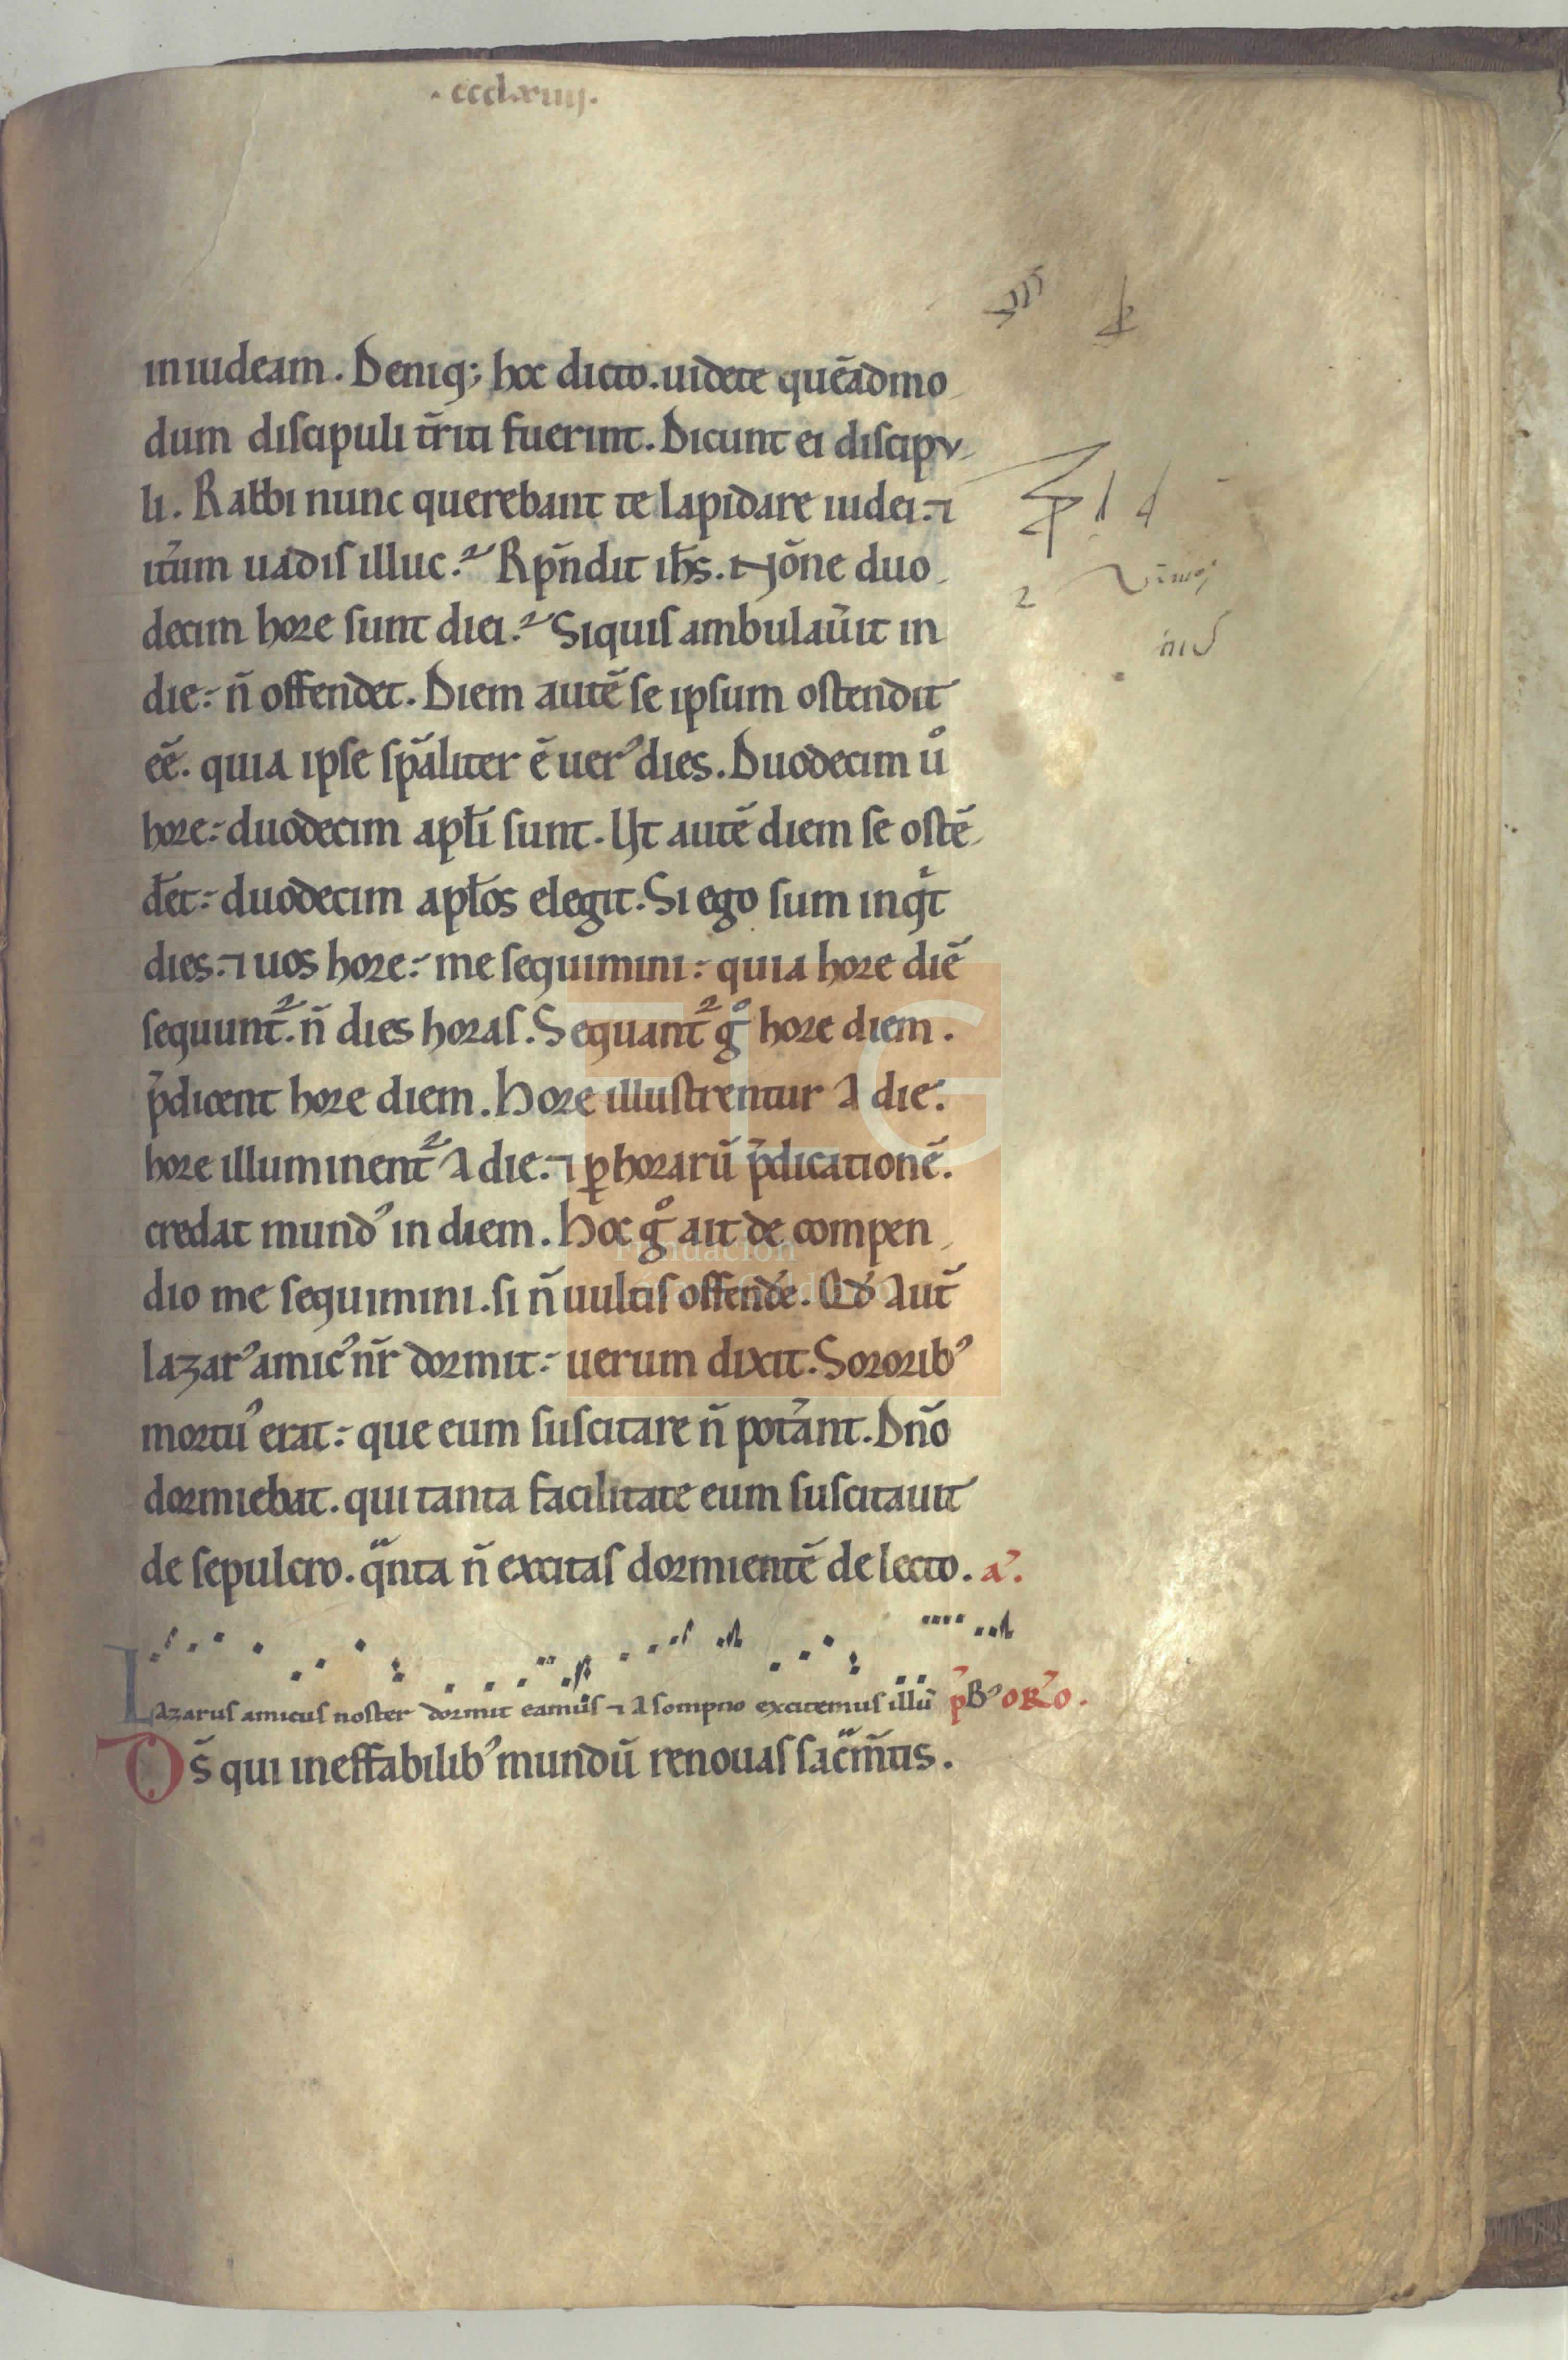 · ccclxiiij.
in iudeam. Deniq; hoc dicto. uidete quẽadmo
dum discipuli tr̃iti fuerint. Dicunt ei discipu
li. Rabbi nunc querebant te lapidare iudei. ⁊
itꝰum uadis illuc? Rp̃ndit ihs̃. Nõne duo
decim hore sunt diei? Siquis ambulau̾it in
die: ñ offendet. Diem autẽ se ipsum ostendit
eẽ. quia ipse sp̃aliter ẽ uerꝰ dies. Duodecim uͦ
hore: duodecim apl̃i sunt. Ut autẽ diem se ostẽ
d̾et: duodecim apl̃os elegit. Si ego sum inqͥt
dies. ⁊ uos hore: me sequimini: quia hore diẽ
sequunt᷑. ñ dies horas. Sequant᷑ gͦ hore diem.
p̃dicent hore diem. Hore illustrentur a die.
hore illuminent᷑ a die. ⁊ ꝑ horarũ p̃dicationẽ.
credat mundꝰ in diem. Hoc gͦ ait de compen
dio me sequimini. si ñ uultis offend̾e. Qd̾ aut̃
lazarꝰ amicꝰ nr̃ dormit: uerum dixit. Sororibꝰ
mortuꝰ erat: que eum suscitare ñ pot̾ant. Dño
dormiebat. qui tanta facilitate eum suscitauit
de sepulcro. qᷓnta ñ excitas dormientẽ de lecto. a̾.
Lazarus amicus noster dormit eamus ⁊ a sompno excitemus illũ p̾ Bꝰ OR̾o.
Ds̃ qui ineffabilibꝰ mundũ renouas sacᷓm̃tis.
Fundación